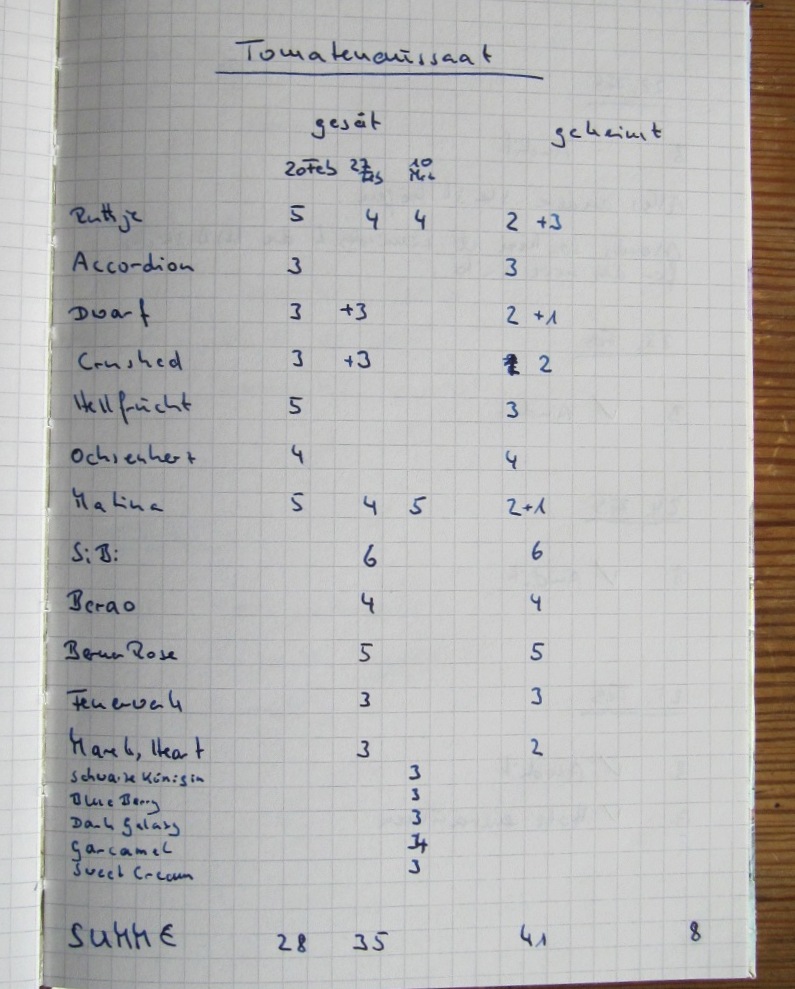 Tomatenaussaat
gesät geheimt
20Feb 27 Feb 10 Mrz
Ruthje 5 4 4 2 +3
Accordion 3 3
Dwarf 3 +3 2 +1
Crushed 3 +3 2
Hellfrücht 5 3
Ochsenherz 4 4
Matina 5 4 5 2+1
SiBi 6 6
Berao 4 4
Berner Rose 5 5
Feuerwerk 3 3
Mareh, Heart 3 2
Schwarze Königin 3
Blue Berry 3
Dark Galaxy 3
Garcamel 4
Sweet Cream 3
SUMME 28 35 41 8